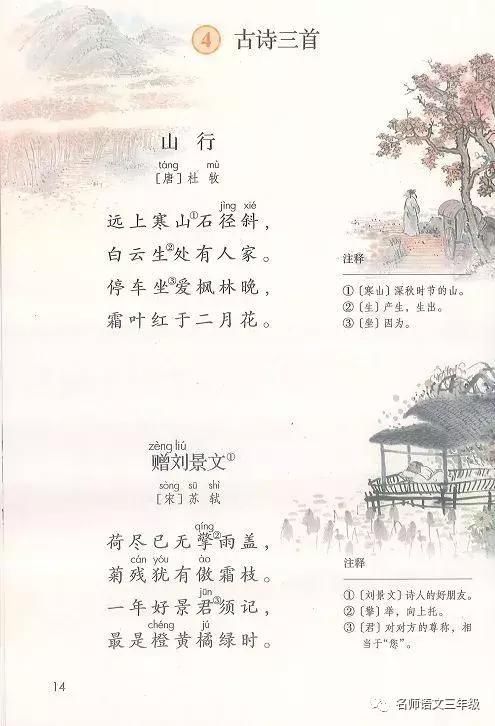 4 古诗三首
山 行
táng mù
[唐]杜 牧
jìng xié
远上寒山①石径斜，
白云生②处有人家。
停车坐③爱枫林晚，
霜叶红于二月花。
注释
①〔寒山〕深秋时节的山。
②〔生〕产生，生出。
③〔坐〕因为。
zèng liú
赠刘景文①
sòng sū shì
[宋]苏 轼
qíng
荷尽已无擎②雨盖，
cán yóu ào
菊残犹有傲霜枝。
jūn
一年好景君③须记，
chéng jú
最是橙黄橘绿时。
注释
①〔刘景文〕诗人的好朋友。
②〔擎〕举，向上托。
③〔君〕对对方的尊称，相
当于“您”。
14
名师语文三年级